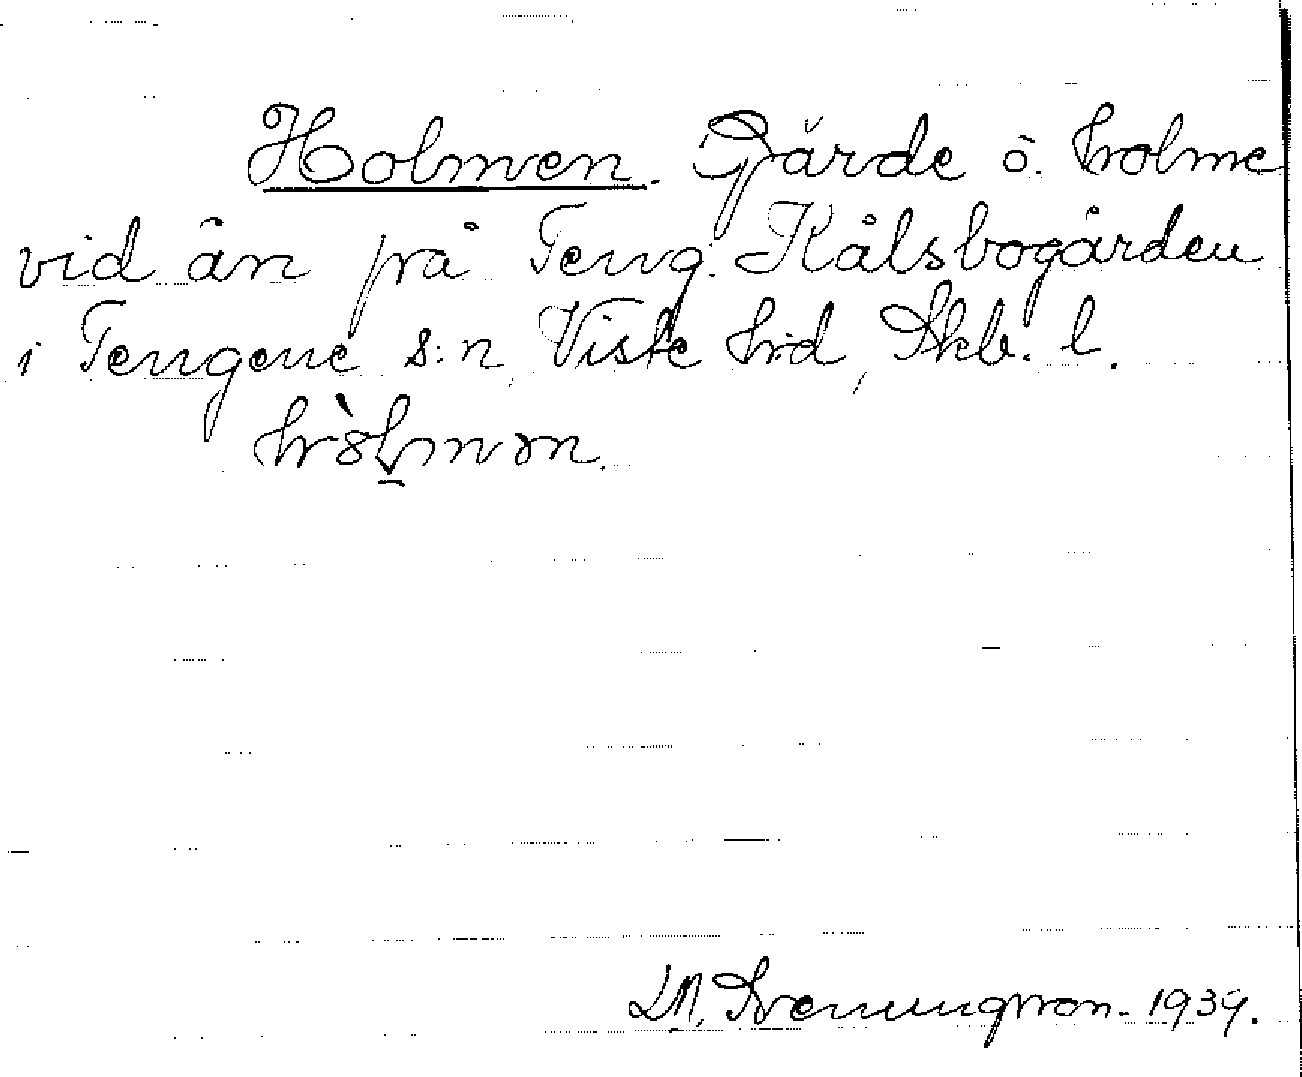 Holmen. Gärde o. holme
vid ån på Teng. Kålsbogården
i Tengene s:n, Viste hrd, Skb. l.
hòlmən.
Svenungsson. 1939.